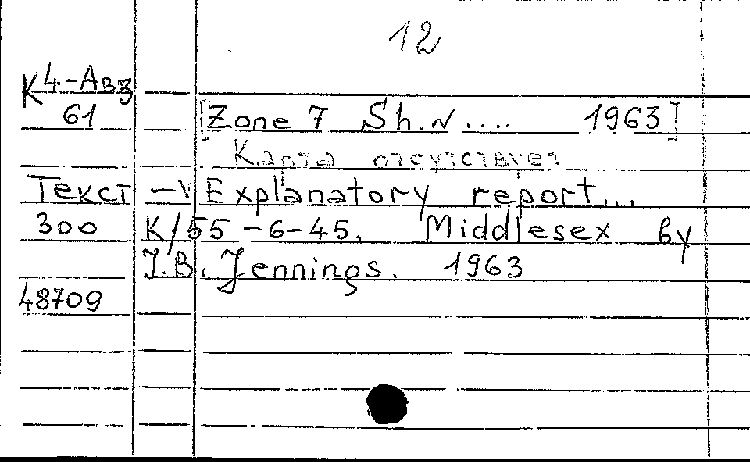 12
К 4-Авз
61
[Zone 7 Sh. N .... 1963]
Карта отсутствует
Текст — Explanatory report...
300 K/55-6-45. Middlesex by
J.B. Jennings. 1963
48709